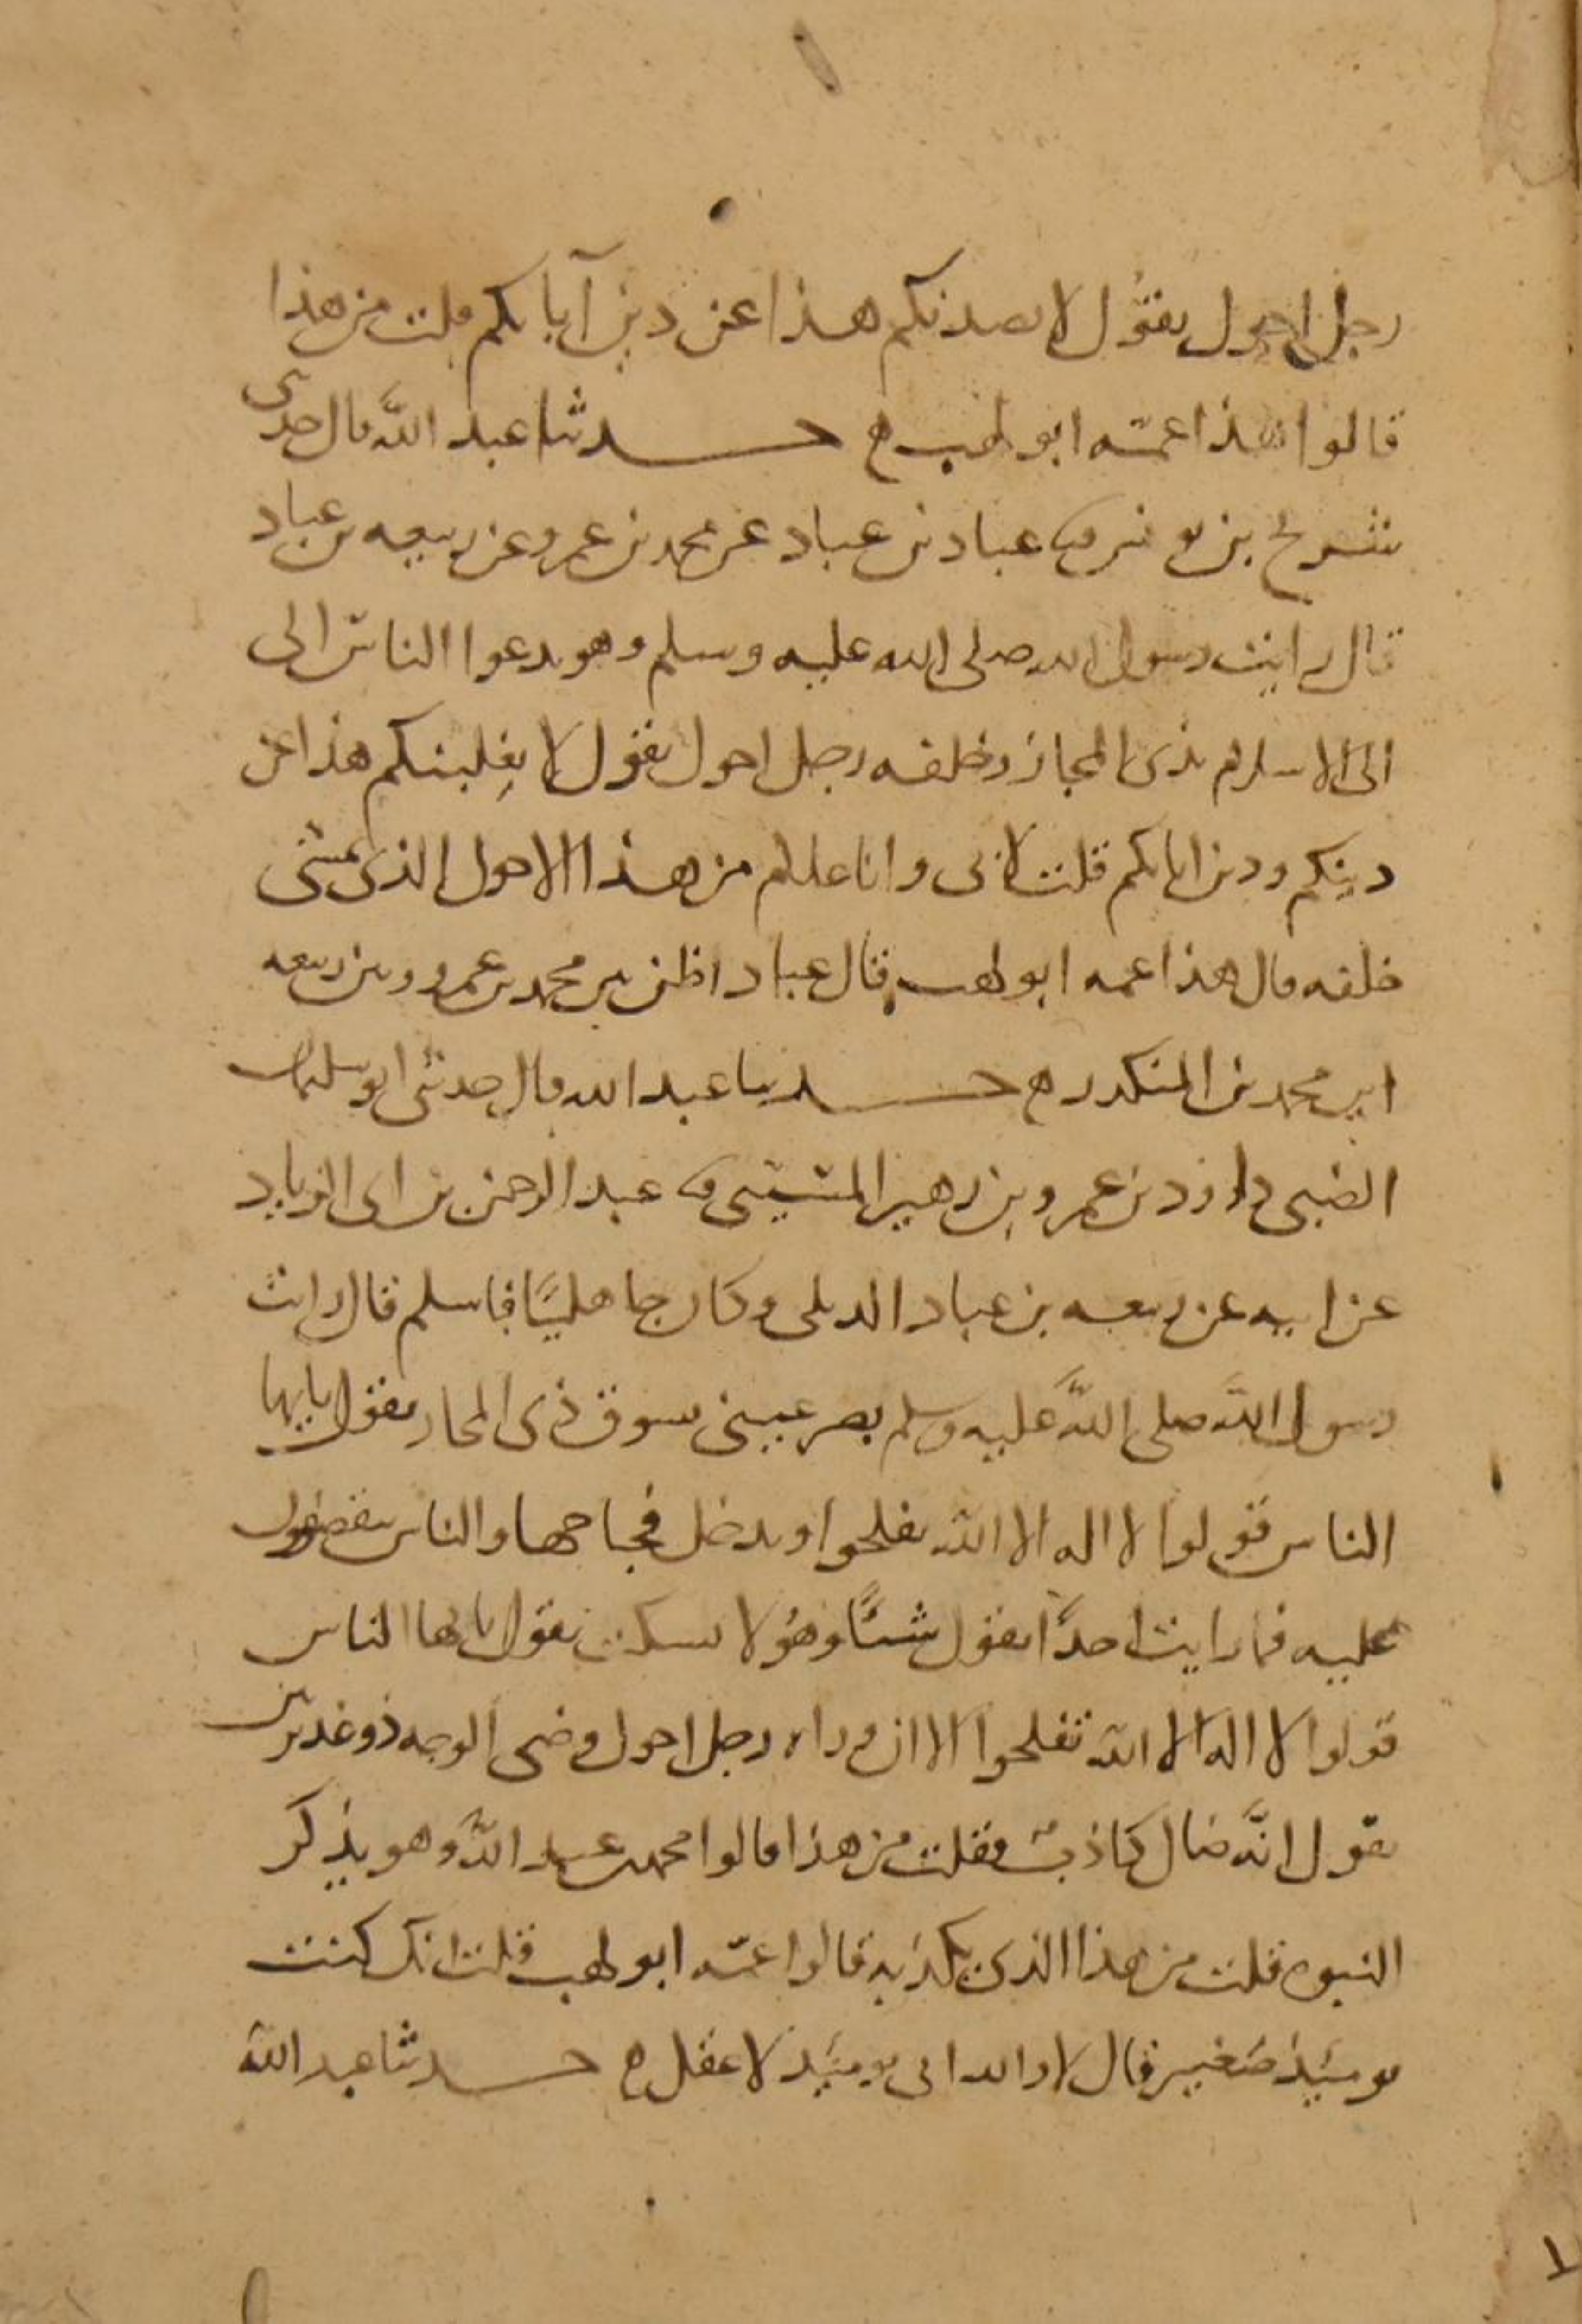 رجل احول يقول لا يصدنكم هذا عن دين آبايكم قلت من هذا
قالوا هذا عمّه ابو لهب ه حدثنا عبد الله قال حدثنى
شريح بن يونس قثنا عباد بن عباد عن محمد بن عمرو عن ربيعه بن عباد
قال رايت رسول الله صلى الله عليه وسلم وهو يدعوا الناس الى
الى الاسلام بذى المجاز وخلفه رجل احول يقول لا يغلبنكم هذا عن
دينكم ودين ابايكم قلت لابى وانا غلام من هذا الاحول الذى يمشى
خلفه قال هذا عمه ابو لهب قال عباد اظن بين محمد بن عمرو وبين ربيعه
ابن محمد بن المنكدر ه حدثنا عبد الله قال حدثنى ابو سليمان
الضبى داود بن عمرو بن زهير المسيبى قثنا عبد الرحمن بن ابى الزناد
عن ابيه عن ربيعه بن عباد الديلى وكان جاهليًا فاسلم قال رايت
رسول الله صلى الله عليه وسلم بصر عينى بسوق ذى المجاز يقول يايها
الناس قولوا لا اله الا الله تفلحوا ويدخل فجاجها والناس متقصفون
عليه فما رايت احدًا يقول شئًا وهُو لا يسكت يقول يايها الناس
قولوا لا اله الا الله تفلحوا الا ان وراه رجل احول وضى الوجه ذو غديرتين
يقول انّه صابى كاذبٌ فقلت من هذا قالوا محمد بن عبد الله وهو يذكر
النبوه قلت من هذا الذى يكذبه قالوا عمّه ابو لهب قلت انك كنت
يوميَذٍ صَغير قال لا والله انى يوميَذ لاعقل ه حدثنا عبد الله